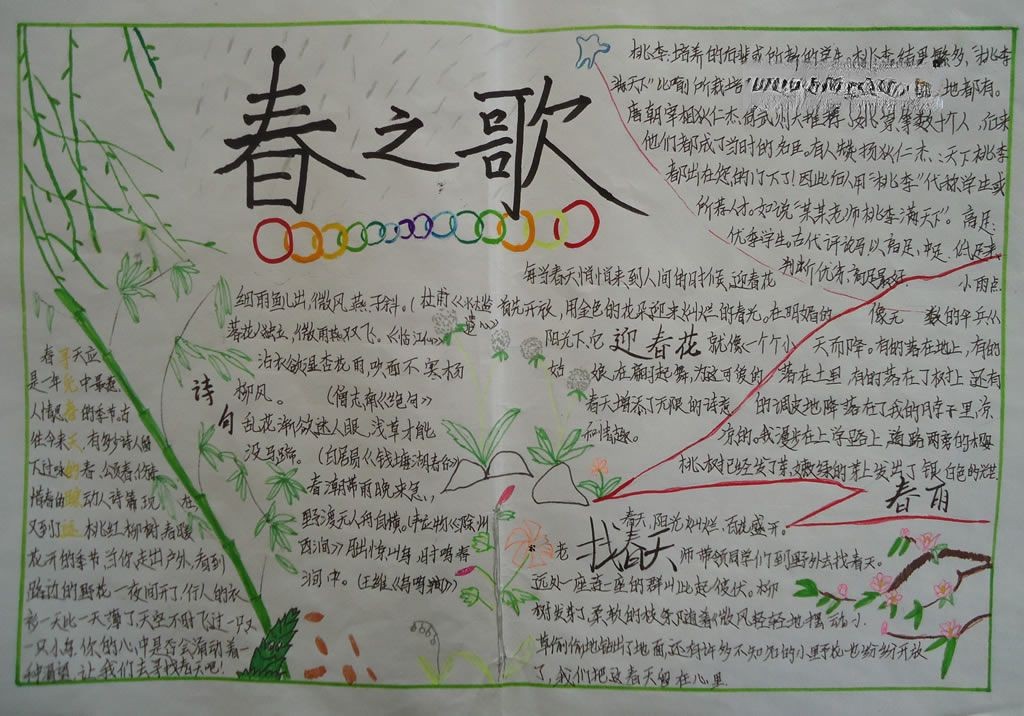 春之歌
桃李:培养的后辈或所教的学生。桃李结果繁多,"桃李
满天下"比喻所栽培
地都有。
唐朝宰相狄仁杰,向武则天推荐
等数十个人,后来
他们都成了当时的名臣。有人赞扬狄仁杰:天下桃李
都出在您的门下了!因此后人用"桃李"代称学生或
所荐人才。如说"某某老师桃李满天下"。高足:
优秀学生。古代评论马以高足、中足、低足来
判断优劣,高足最好。
细雨鱼儿出,微风燕子斜。(杜甫《水槛
遣心》
落花人独立,微雨燕双飞。《临江仙》
沾衣欲湿杏花雨,吹面不寒杨
柳风。(僧志南《绝句》
乱花渐欲迷人眼,浅草才能
没马蹄。(白居易《钱塘湖春行》
春潮带雨晚来急,
野渡无人舟自横。(韦应物《滁州
西涧》月出惊山鸟,时鸣春
涧中。(王维《鸟鸣涧》
诗句
每当春天悄悄来到人间的时候,迎春花
首先开放,用金色的花朵迎来灿烂的春光。在明媚的
阳光下,它
迎春花
就像一个个小
姑
娘,在翩翩起舞,为这可爱的
春天增添了无限的诗意
和情趣。
小雨点
像无
数的伞兵从
天而降。有的落在地上,有的
落在土里,有的落在了树上,还有
的调皮地降落在了我的脖子里,凉
凉的。我漫步在上学路上,道路两旁的樱
桃树已经发了芽,嫩绿的芽上发出了银白色的光芒
春雨
寻觅春天的踪迹
春天应
是一年中最惹
人情思的季节。古
往今来,有多少诗人留
下过咏春、颂春、伤春、
惜春的动人诗篇。现在,
又到了桃红、柳树、春暖
花开的季节,当你走出户外,看到
路边的野花一夜间开了,行人的衣
衫一天比一天薄了,天空不时飞过一只又
一只小鸟,你的心中是否会涌动着一
种渴望:让我们去寻找春天吧!
春天,阳光灿烂,百花盛开。
老
找春天
师带领同学们到野外去找春天。
远处一座连一座的群山此起彼伏。柳
树发芽了,柔软的枝条随着微风轻轻地摆动。小
草偷偷地钻出了地面,还有许多不知名的小野花也纷纷开放
了,我们把这春天留在心里。